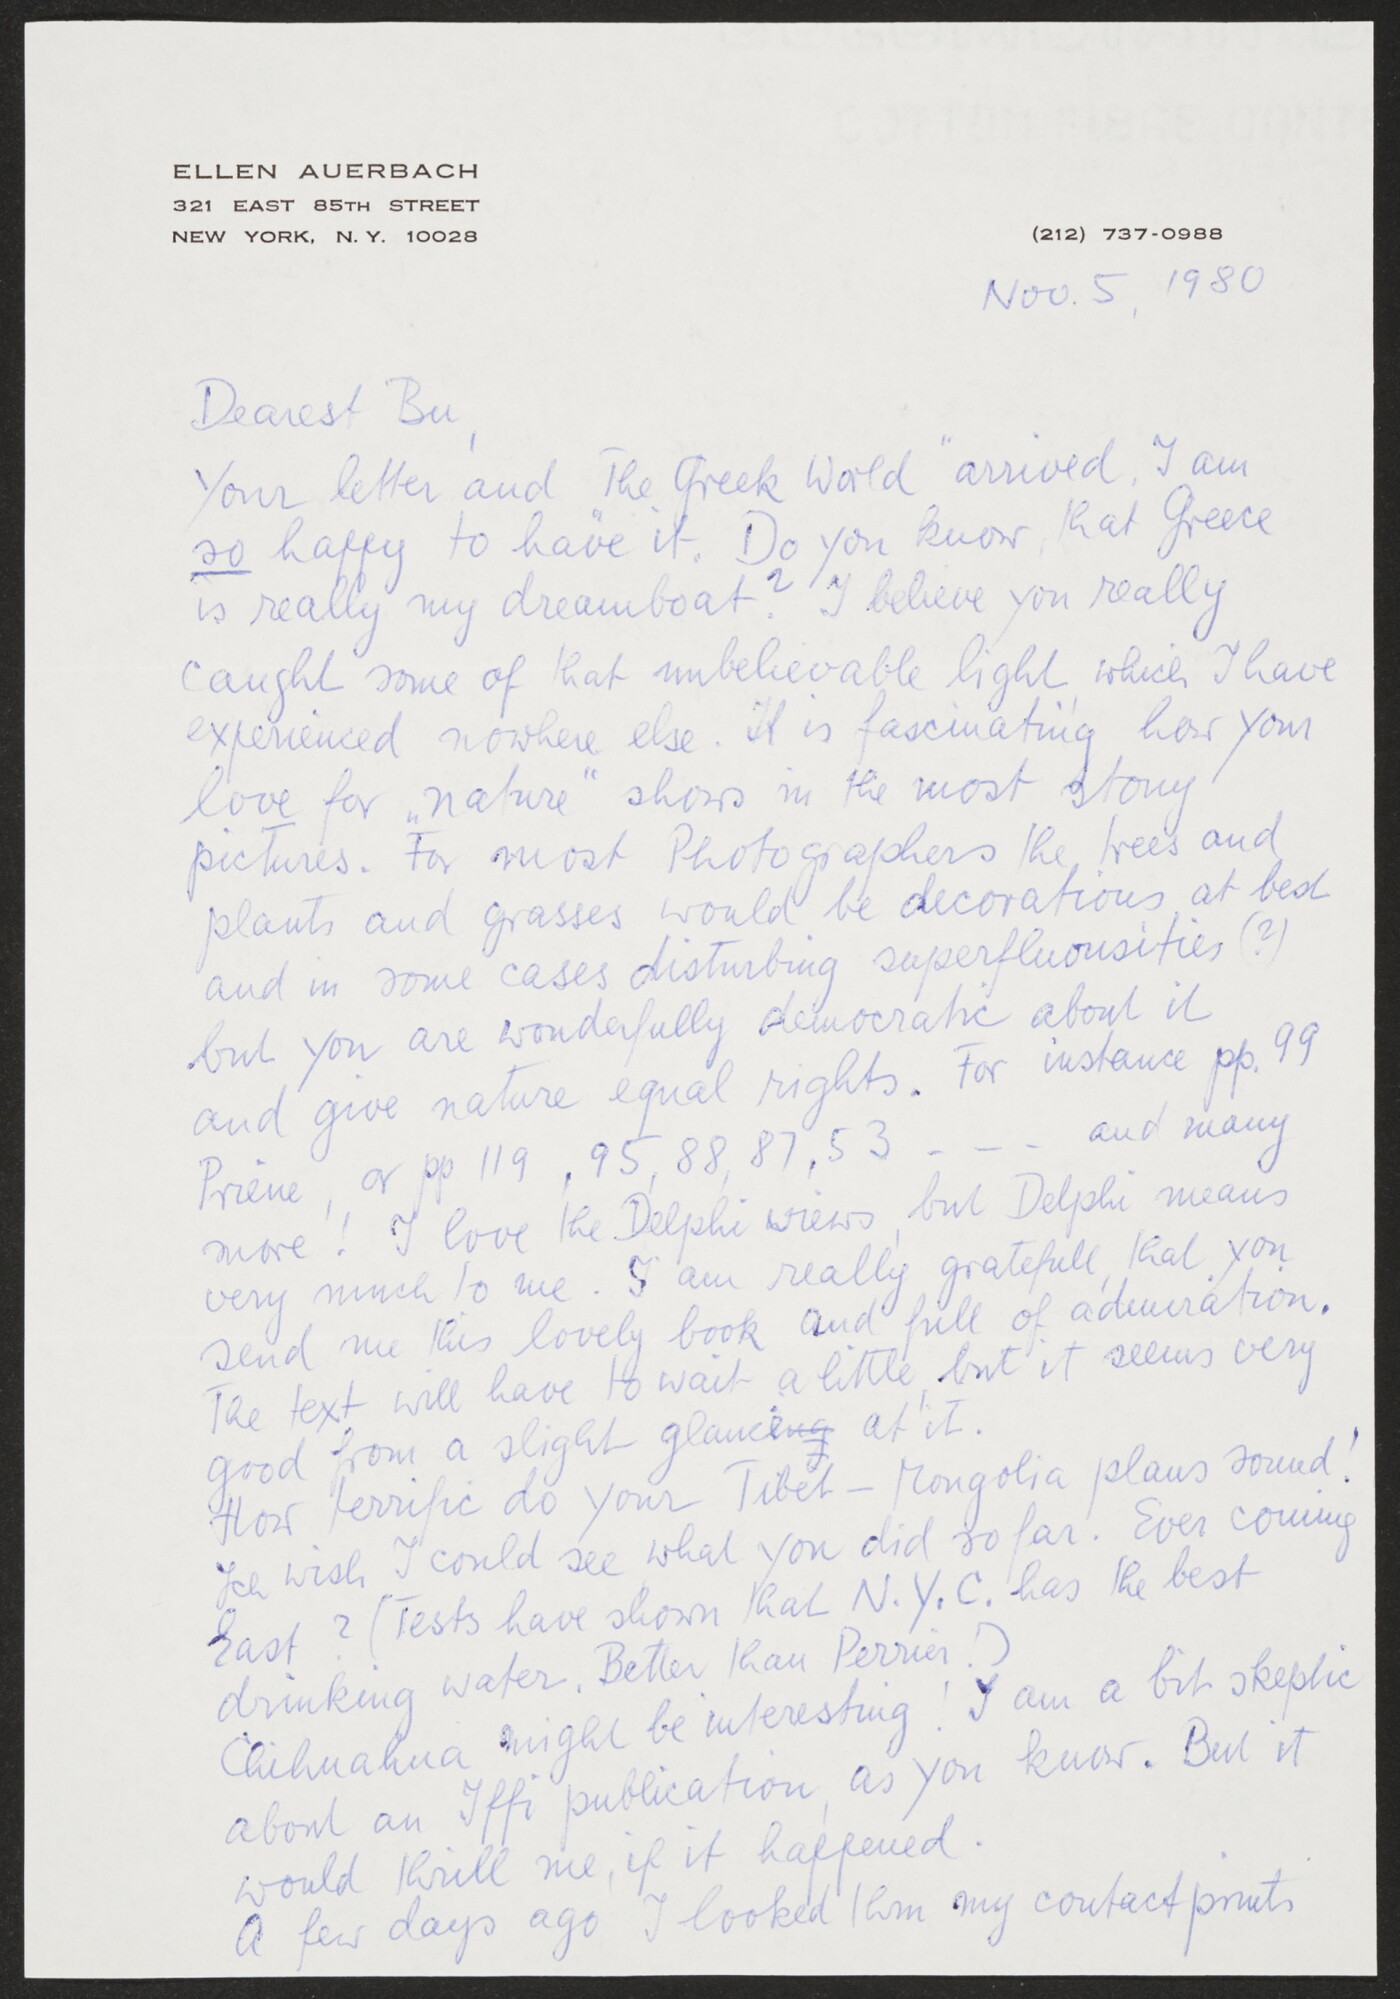 ELLEN AUERBACH
321 EAST 85TH STREET
NEW YORK, N.Y. 10028
(212) 737-0988
Nov. 5, 1980
Dearest Bu,
Your letter and "The Greek World" arrived. I am
so happy to have it. Do you know, that Greece
is really my dreamboat? I believe you really
caught some of that unbelievable light, which I have
experienced nowhere else. It is fascinating how your
love for „nature“ shows in the most stony
pictures. For most Photographers the trees and
plants and grasses would be decorations at best
and in some cases disturbing superfluousities (?)
but you are wonderfully democratic about it
and give nature equal rights. For instance pp. 99
Priene, or pp 119, 95, 88, 87, 53 - - - and many
more!! I love the Delphi views, but Delphi means
very much to me. I am really gratefull, that you
send me this lovely book and full of admiration.
The text will have to wait a little, but it seems very
good from a slight glancing at it.
How terrific do your Tibet - Mongolia plans sound!
Ich wish I could see what you did so far. Ever coming
East? (Tests have shown that N.Y.C. has the best
drinking water. Better than Perrier!)
Chihuahua might be interesting! I am a bit skeptic
about an Iffi publication, as you know. But it
would thrill me, if it happened.
A few days ago I looked thru my contactprints